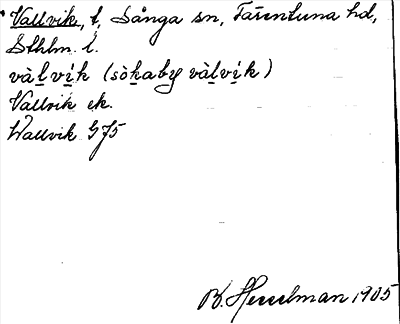 Vallvik, t, Sånga sn, Färentuna hd,
Sthlm. l.
vàl̲ ví̲k (sòk̲aby vàl̲ví̲k)
Vallvik ek.
Wallvik G75
B. Hesselman 1905